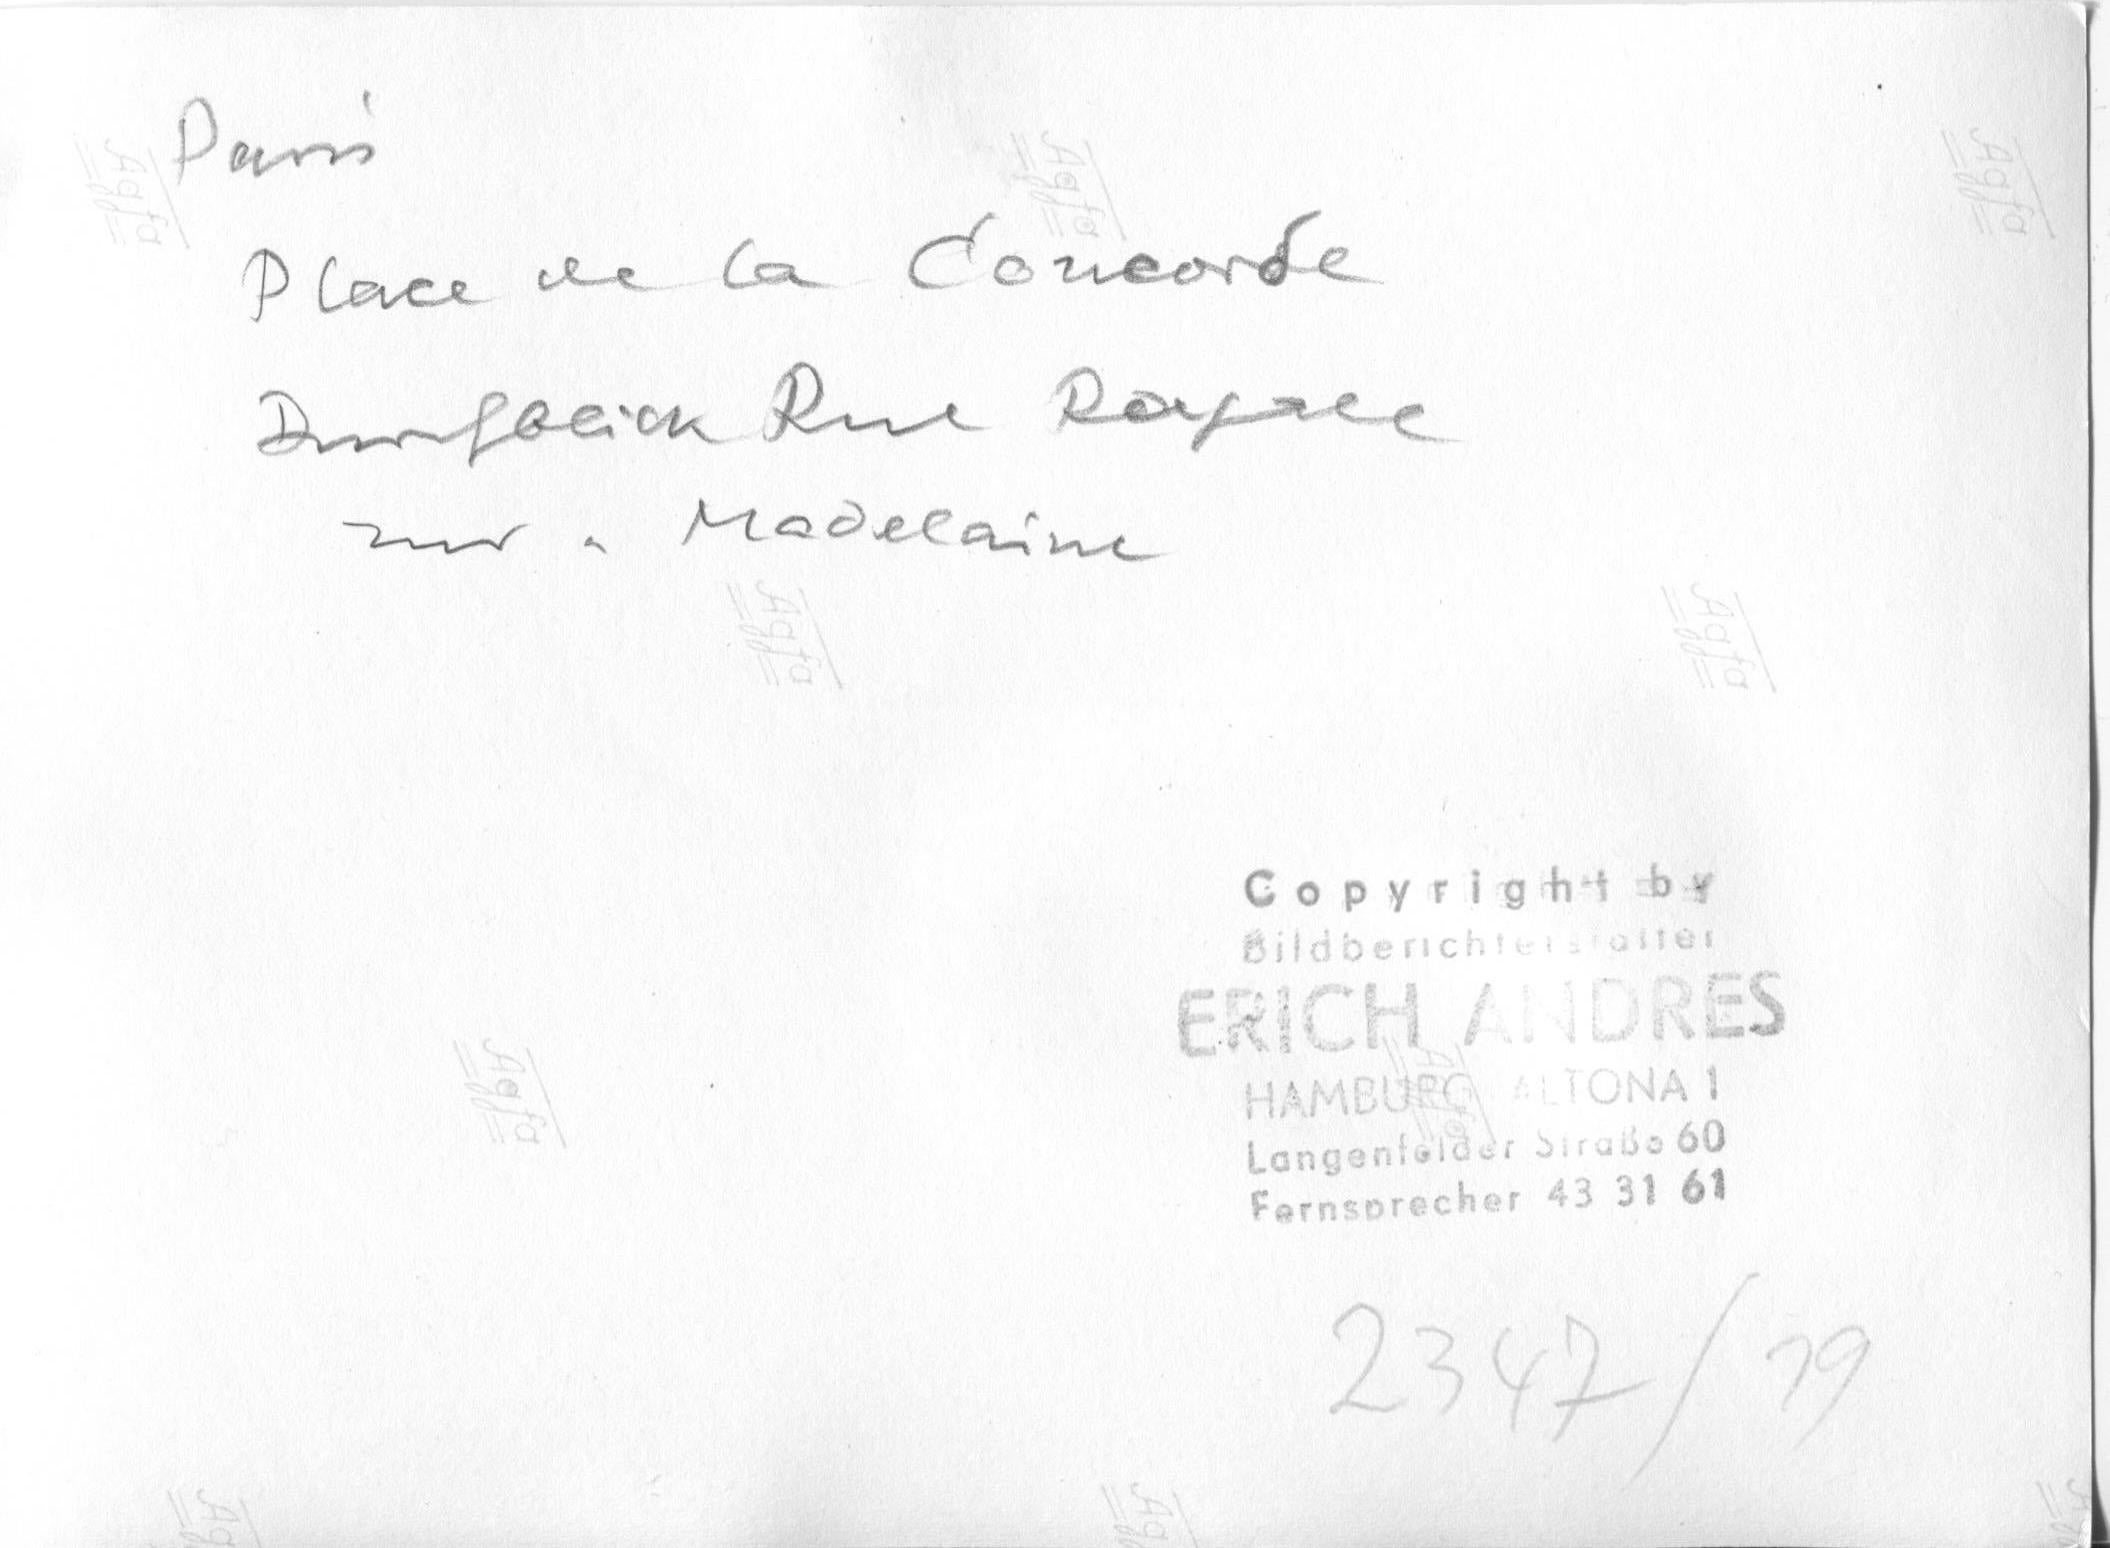 Paris
Place de la Concorde
Durchblick Rue Royale
zur " Madelaine
Copyright by
Bildberichterstatter
ERICH ANDRES
HAMBURG ALTONA 1
Langenfelder Straße 60
Fernsprecher 43 31 61
2347/19
Agfa
Agfa
Agfa
Agfa
Agfa
Agfa
Agfa